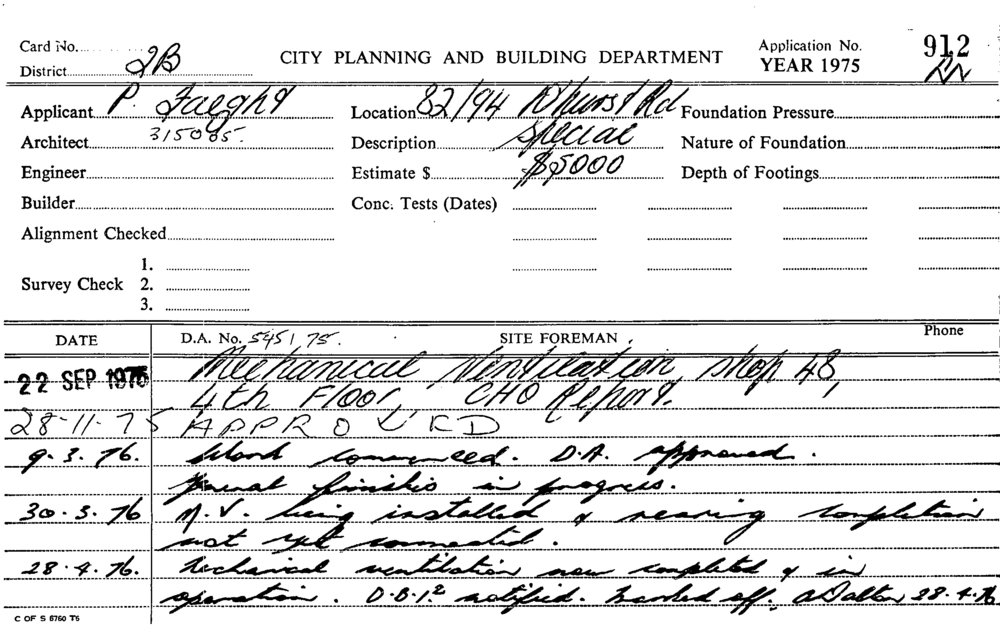 Card No.
District 2B
CITY PLANNING AND BUILDING DEPARTMENT
Application No. 912
YEAR 1975
Applicant P.
Location 82/94 D'hurst Rd
Foundation Pressure
Architect 315085.
Description Special
Nature of Foundation
Engineer
Estimate $ $5000
Depth of Footings
Builder
Conc. Tests (Dates)
Alignment Checked
Survey Check
1.
2.
3.
DATE
D.A. No. 5451 75.
SITE FOREMAN
Phone
22 SEP 1975 Mechanical Ventilation, shop 48,
4th Floor, CHO Report.
28-11-75 APPROVED
9.3.76. Work commenced. D.A. approved.
finishes in progress.
30.3.76 M.V. being installed & nearing completion
not yet connected.
28.4.76. Mechanical ventilation now completed & in
operation. D.B.I. notified. Marked off. A Dalton 28.4.76
C OF S 6760 T6